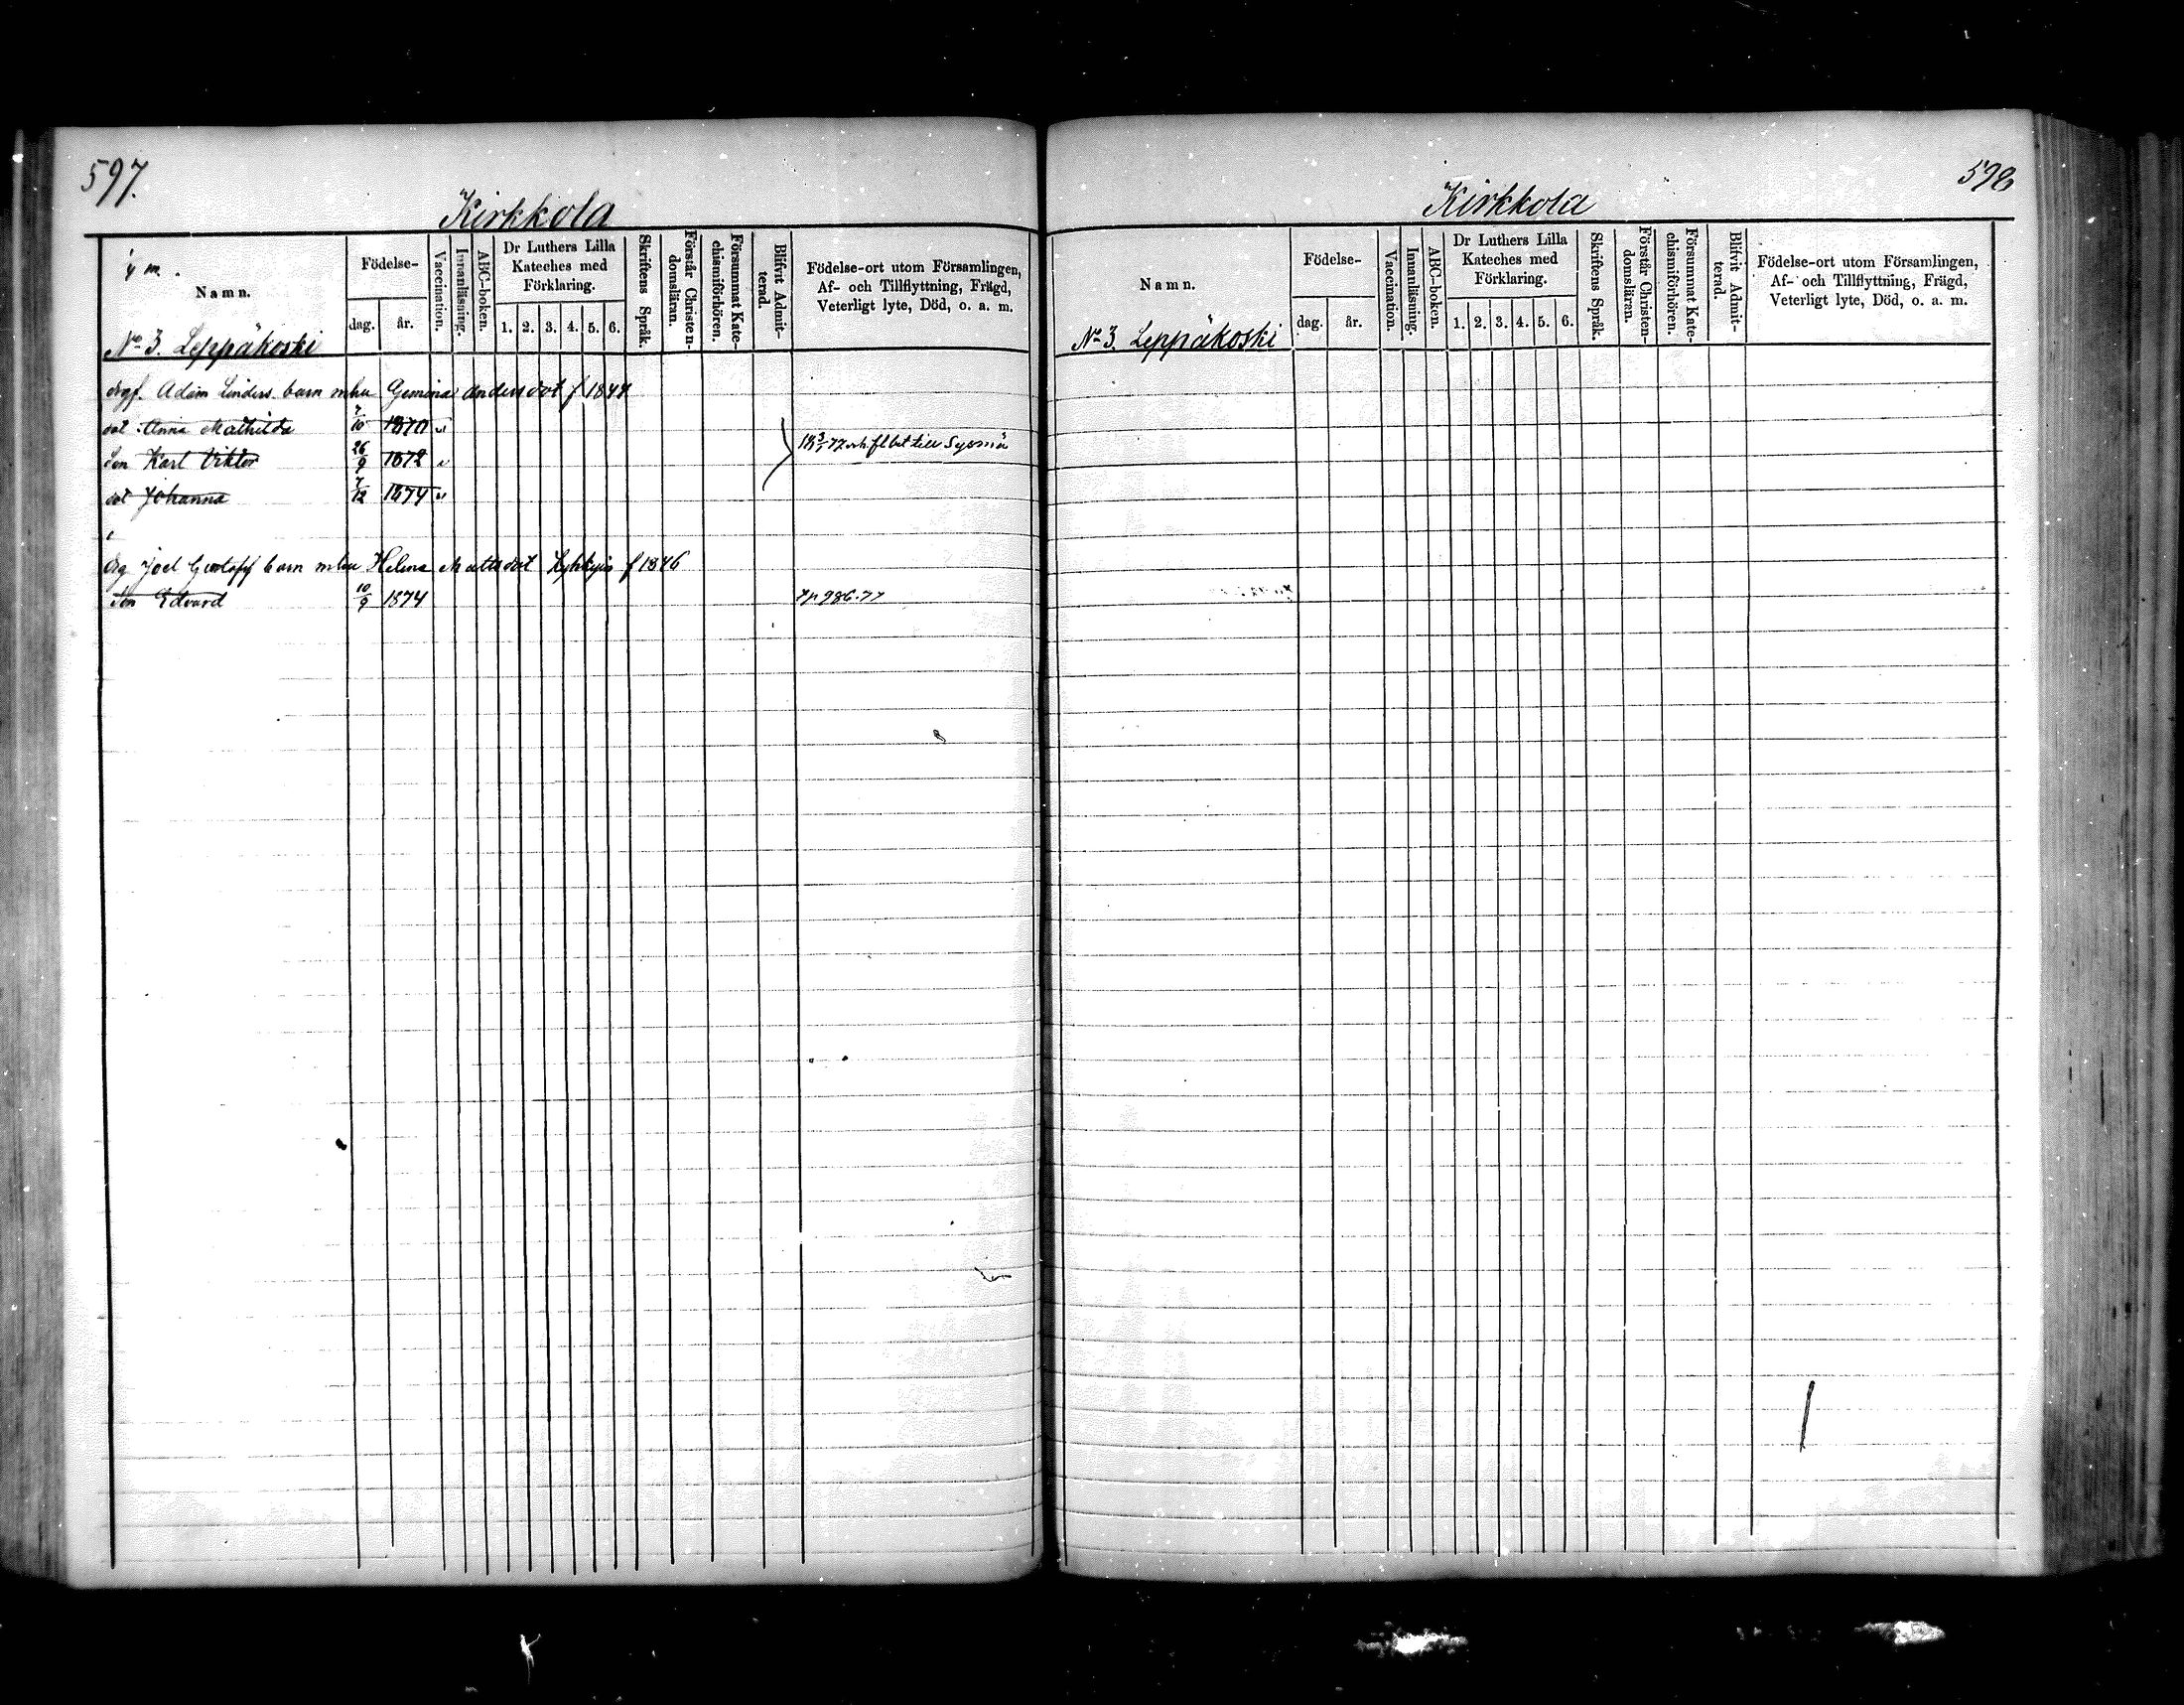 597.
Kirkkola
Namn.
Födelse-
dag. år.
Vaccination.
Innanläsning.
ABC-boken.
Dr Luthers Lilla
Kateches med
Förklaring.
1. 2. 3. 4. 5. 6.
Skriftens Språk.
Förstår Christen-
domsläran.
Försummat Kate-
chismiförhören.
Blifvit Admit-
terad.
Födelse-ort utom Församlingen,
Af- och Tillflyttning, Frägd,
Veterligt lyte, Död, o. a. m.
No 3. Leppäkoski
Adam Linders barn mhu Gemina Andersdot f 1844
dot Anna Mathilda 7/10 1870
Son Karl Viktor 26/9 1872
till Sysmä
dot Johanna 7/12 1874
Joel Gustafs barn mhu Helena Mattsdot f 1846
Son Edvard 10/9 1874 986.77
598
Kirkkola
Namn.
Födelse-
dag. år.
Vaccination.
Innanläsning.
ABC-boken.
Dr Luthers Lilla
Kateches med
Förklaring.
1. 2. 3. 4. 5. 6.
Skriftens Språk.
Förstår Christen-
domsläran.
Försummat Kate-
chismiförhören.
Blifvit Admit-
terad.
Födelse-ort utom Församlingen,
Af- och Tillflyttning, Frägd,
Veterligt lyte, Död, o. a. m.
No 3. Leppäkoski